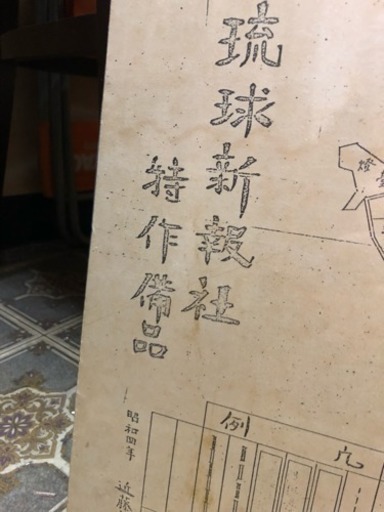 琉球新報社
特作備品
凡例
昭和四年
近藤